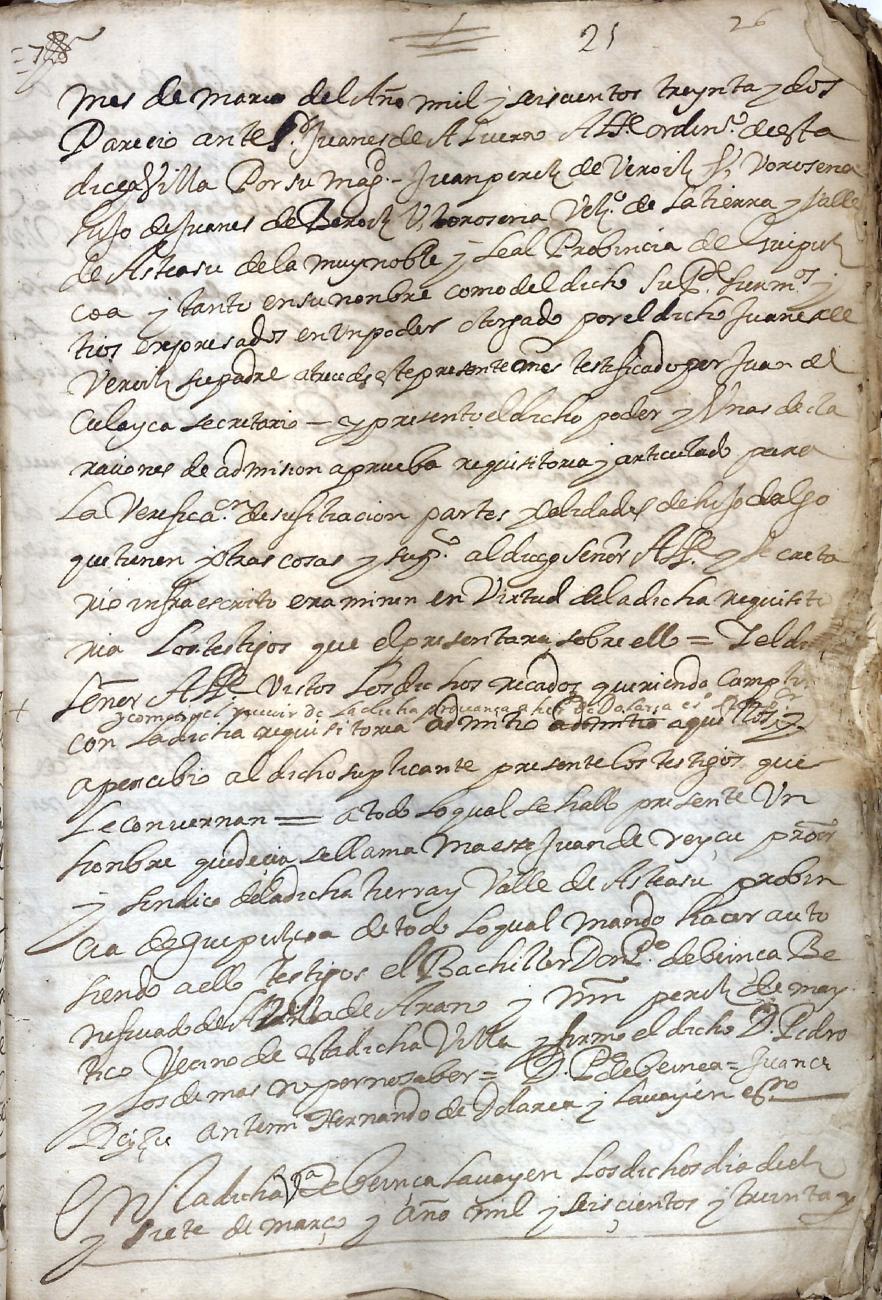 21 26
mes de março del Año mil y seiscientos treynta y dos
Parecio ante Juanes de Alcalde ordinº de esta
dicha Villa Por su magd Juan perez de Veroiz Vorosena
hijo de Juanes de Beroiz Vezº de La tierra y valle
de Asteasu de la muy noble y Leal Probincia de Guipuz
coa y tanto en su nonbre como del dicho su Pe hermos y
tios expresados en Un poder otorgado por el dicho Juanes de
Veroiz su padre a trece de este presente mes testificado por Juan de
secretario — y presento el dicho poder y Unas decla
raciones de admision a prueba requisitoria y articulado para
La Verificaon de su filiacion partes y calidades de hijo dalgo
que tienen y otras cosas y supco al dicho Señor Alle y Secreta
rio infraescrito examinen en Virtud de la dicha requisito
ria Los testigos que el presentara sobre ello = Y el dho
Señor Alle Vistos Los dichos recados queriendo Cumplir
y comparecer de La dicha provança a her de Dolarea esno
con La dicha requisitoria admitio admitio aquellos y
apercibio al dicho suplicante presente los testigos que
Le convernan = a todo Lo qual se hallo presente Un
honbre que decia se llama Maesse Juan de Reyçu pror
y Sindico de la dicha tierra y Valle de Asteasu probin
cia de guipuzcoa de todo Lo qual mando hacer auto
siendo a ello Testigos el Bachiller Don Po de beinca Be
neficiado de la Villa de Arano y mnn perez de may
tico Vecino de esta dicha Villa y firmo el dicho D. Pedro
y Los demas no por no saber = D. Po de beinca = Juanes
Reyçu ante mi Hernando de Dolarea y Lavayen esno
En La dicha Va de beinça Lavayen Los dichos dia diez
y siete de março y año mil y seiscientos y treinta y